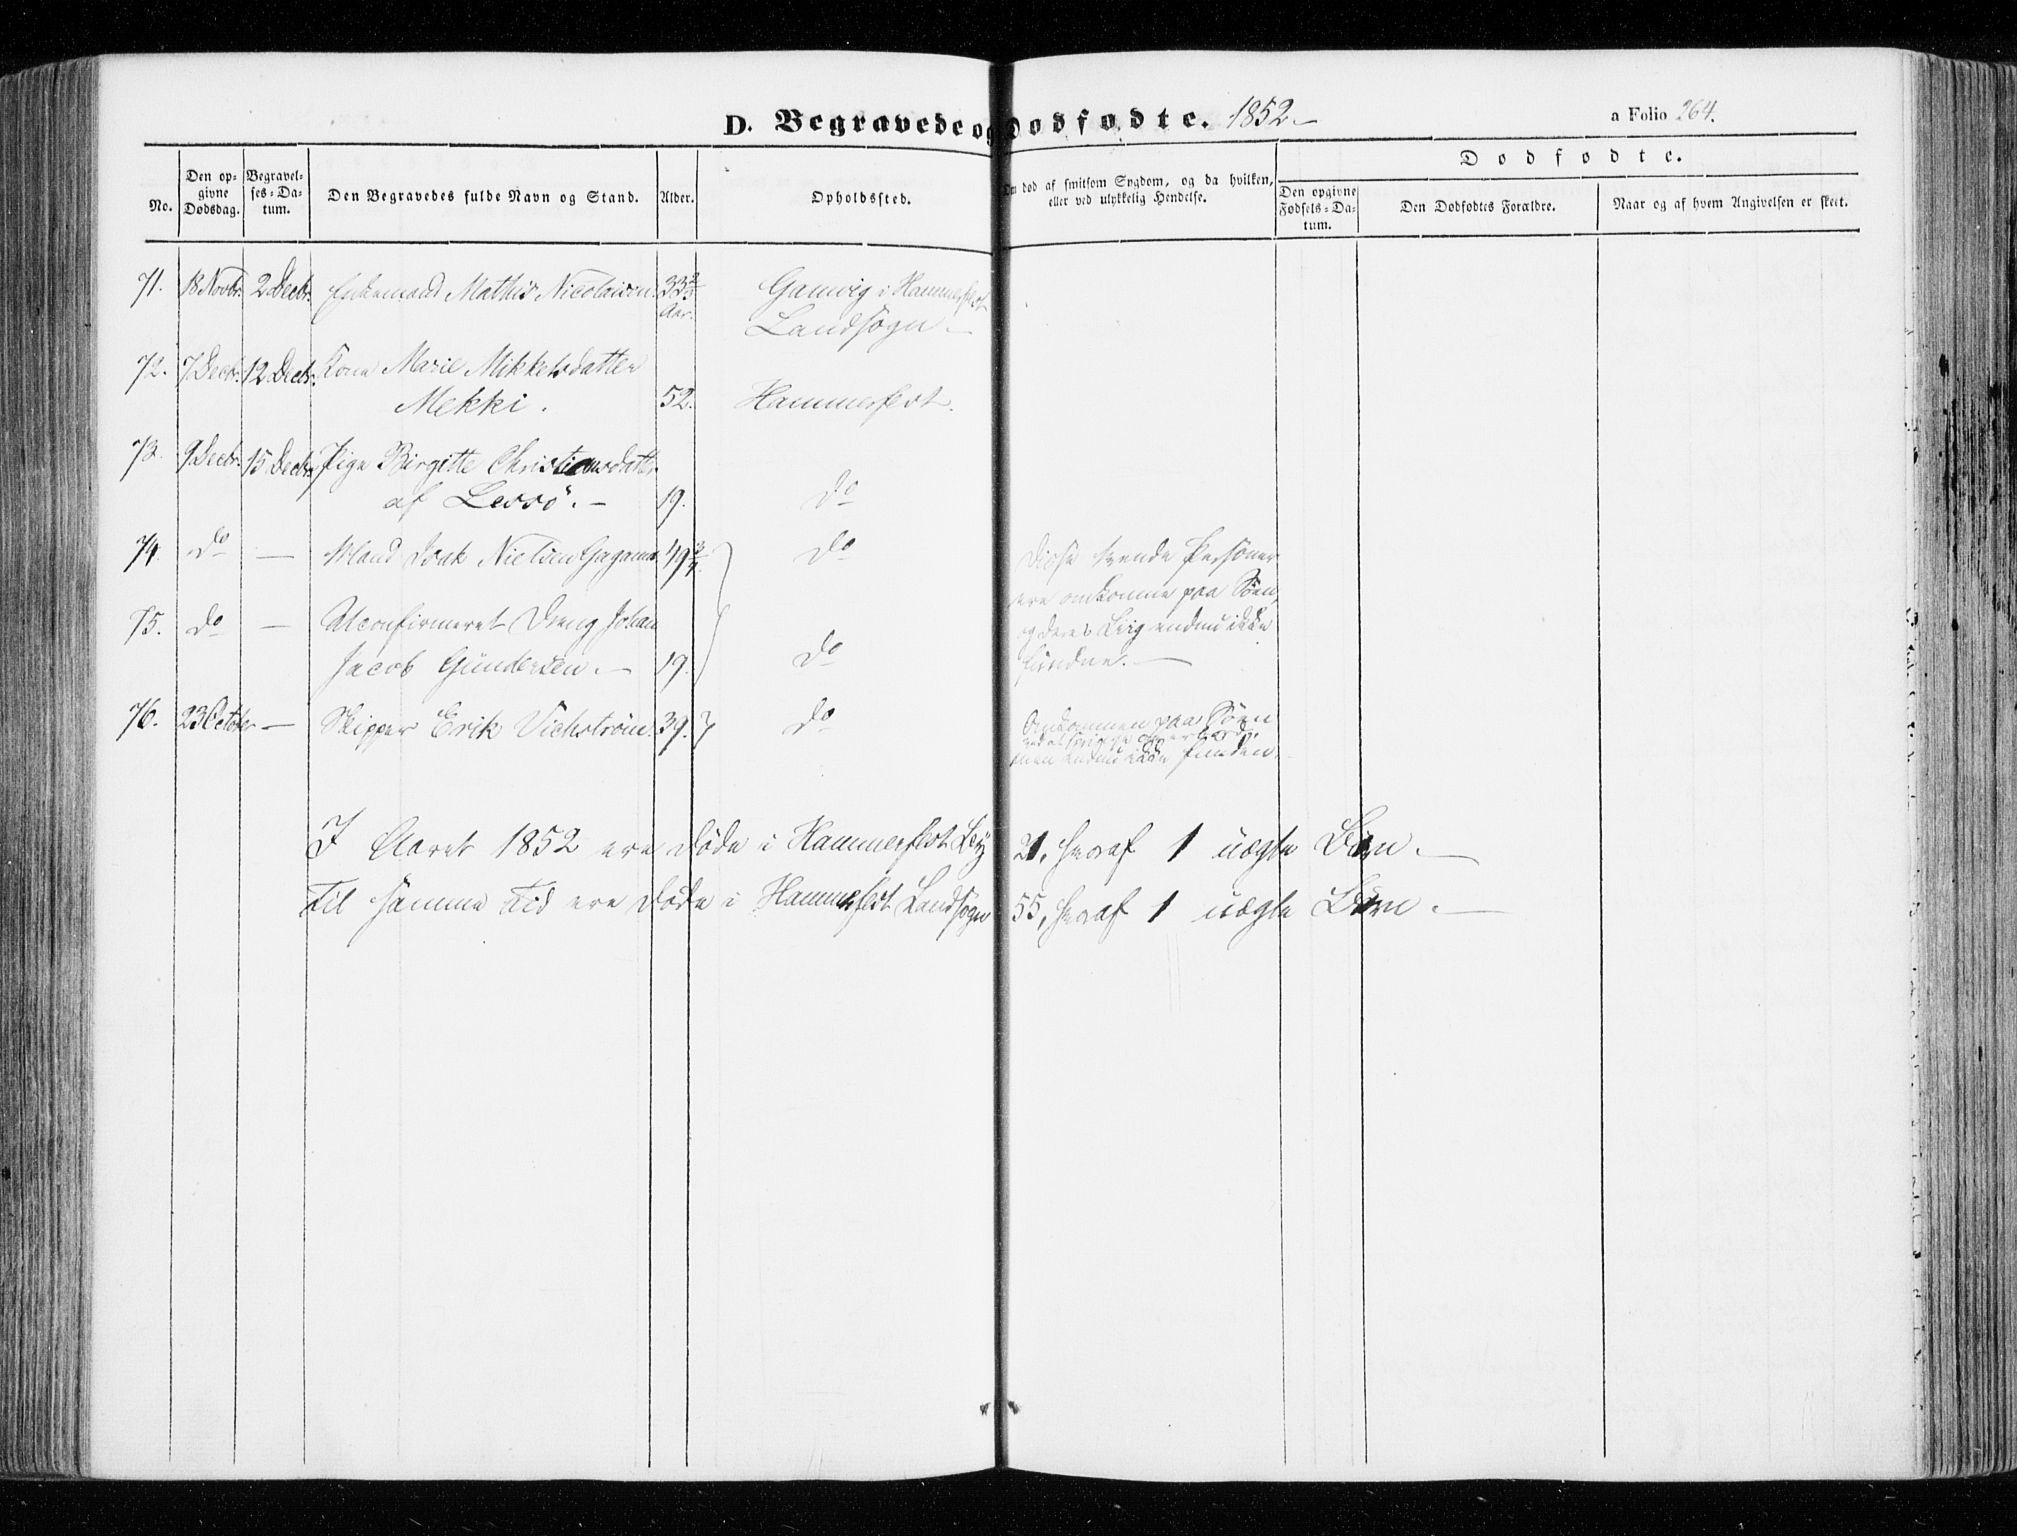 D. Begravede og Dødfødte. 1852.–
a Folio 264.
No.
Den op-
givne
Dødsdag.
Begravel-
ses-Da-
tum.
Den Begravedes fulde Navn og Stand.
Alder.
Opholdssted.
Om død af smitsom Sygdom, og da hvilken,
eller ved ulykkelig Hendelse.
Dødfødte.
Den opgivne
Fødsels-Da-
tum.
Den Dødfødtes Forældre.
Naar og af hvem Angivelsen er skeet.
71. 18 Novbr. 2 Decbr. Enkemand Mathis Nicolaisen 33 Gamvig i Hammerfest
Aar. Landsogn –
72. 7 Decbr. 12 Decbr. Kone Marie Mikkelsdatter
Mekki. 52. Hammerfest.
73. 9 Decbr. 15 Decbr. Pige Birgitte Christiansdatter
af Lessö. – 19. Do
74. Do — Mand Isak 49 3/4. Do Disse tvende Personer
ere omkomne paa Søen,
75. Do — Uconfirmeret Dreng Johan og deres Liig endnu ikke
Jacob Gundersen. – 19. Do fundne. —
76. 23 October — Skipper Erik Vichström 39. Do Omkommen paa Søen
men endnu ikke funden.
I Aaret 1852 ere døde i Hammerfest By 21, heraf 1 uægte Børn. —
Til samme Tid ere døde i Hammerfest Landsogn 55, heraf 1 uægte Børn. —